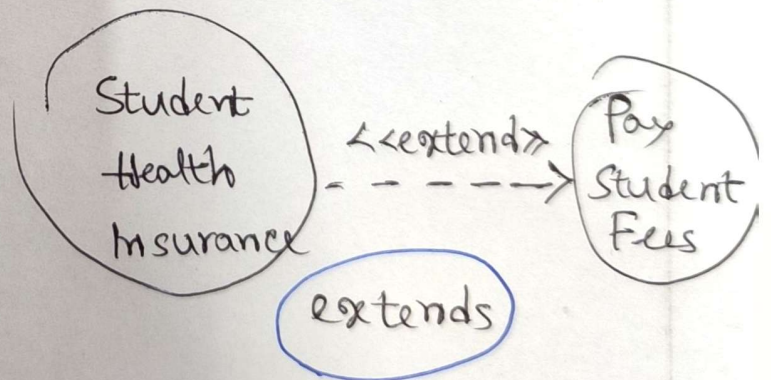 Student
Health
Insurance
<<extend>>
Pay
Student
Fees
extends